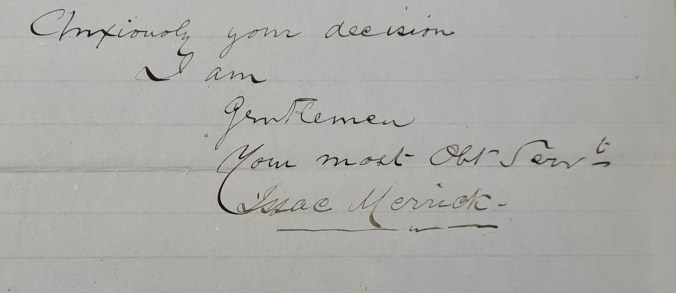 Anxiously your decision
I am
Gentlemen
Your most Obt Servt
Issac Merrick-